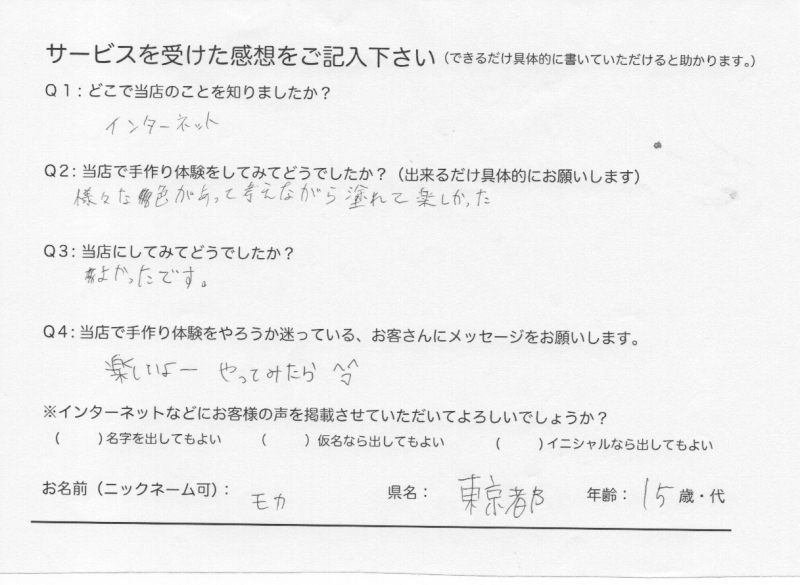 サービスを受けた感想をご記入下さい（できるだけ具体的に書いていただけると助かります。）
Ｑ１：どこで当店のことを知りましたか？
インターネット
Ｑ２：当店で手作り体験をしてみてどうでしたか？（出来るだけ具体的にお願いします）
様々な色があって考えながら塗れて楽しかった
Ｑ３：当店にしてみてどうでしたか？
よかったです。
Ｑ４：当店で手作り体験をやろうか迷っている、お客さんにメッセージをお願いします。
楽しいよー やってみたら
※インターネットなどにお客様の声を掲載させていただいてよろしいでしょうか？
（　　）名字を出してもよい　（　　）仮名なら出してもよい　（　　）イニシャルなら出してもよい
お名前（ニックネーム可）：モカ　県名：東京都　年齢：15歳・代